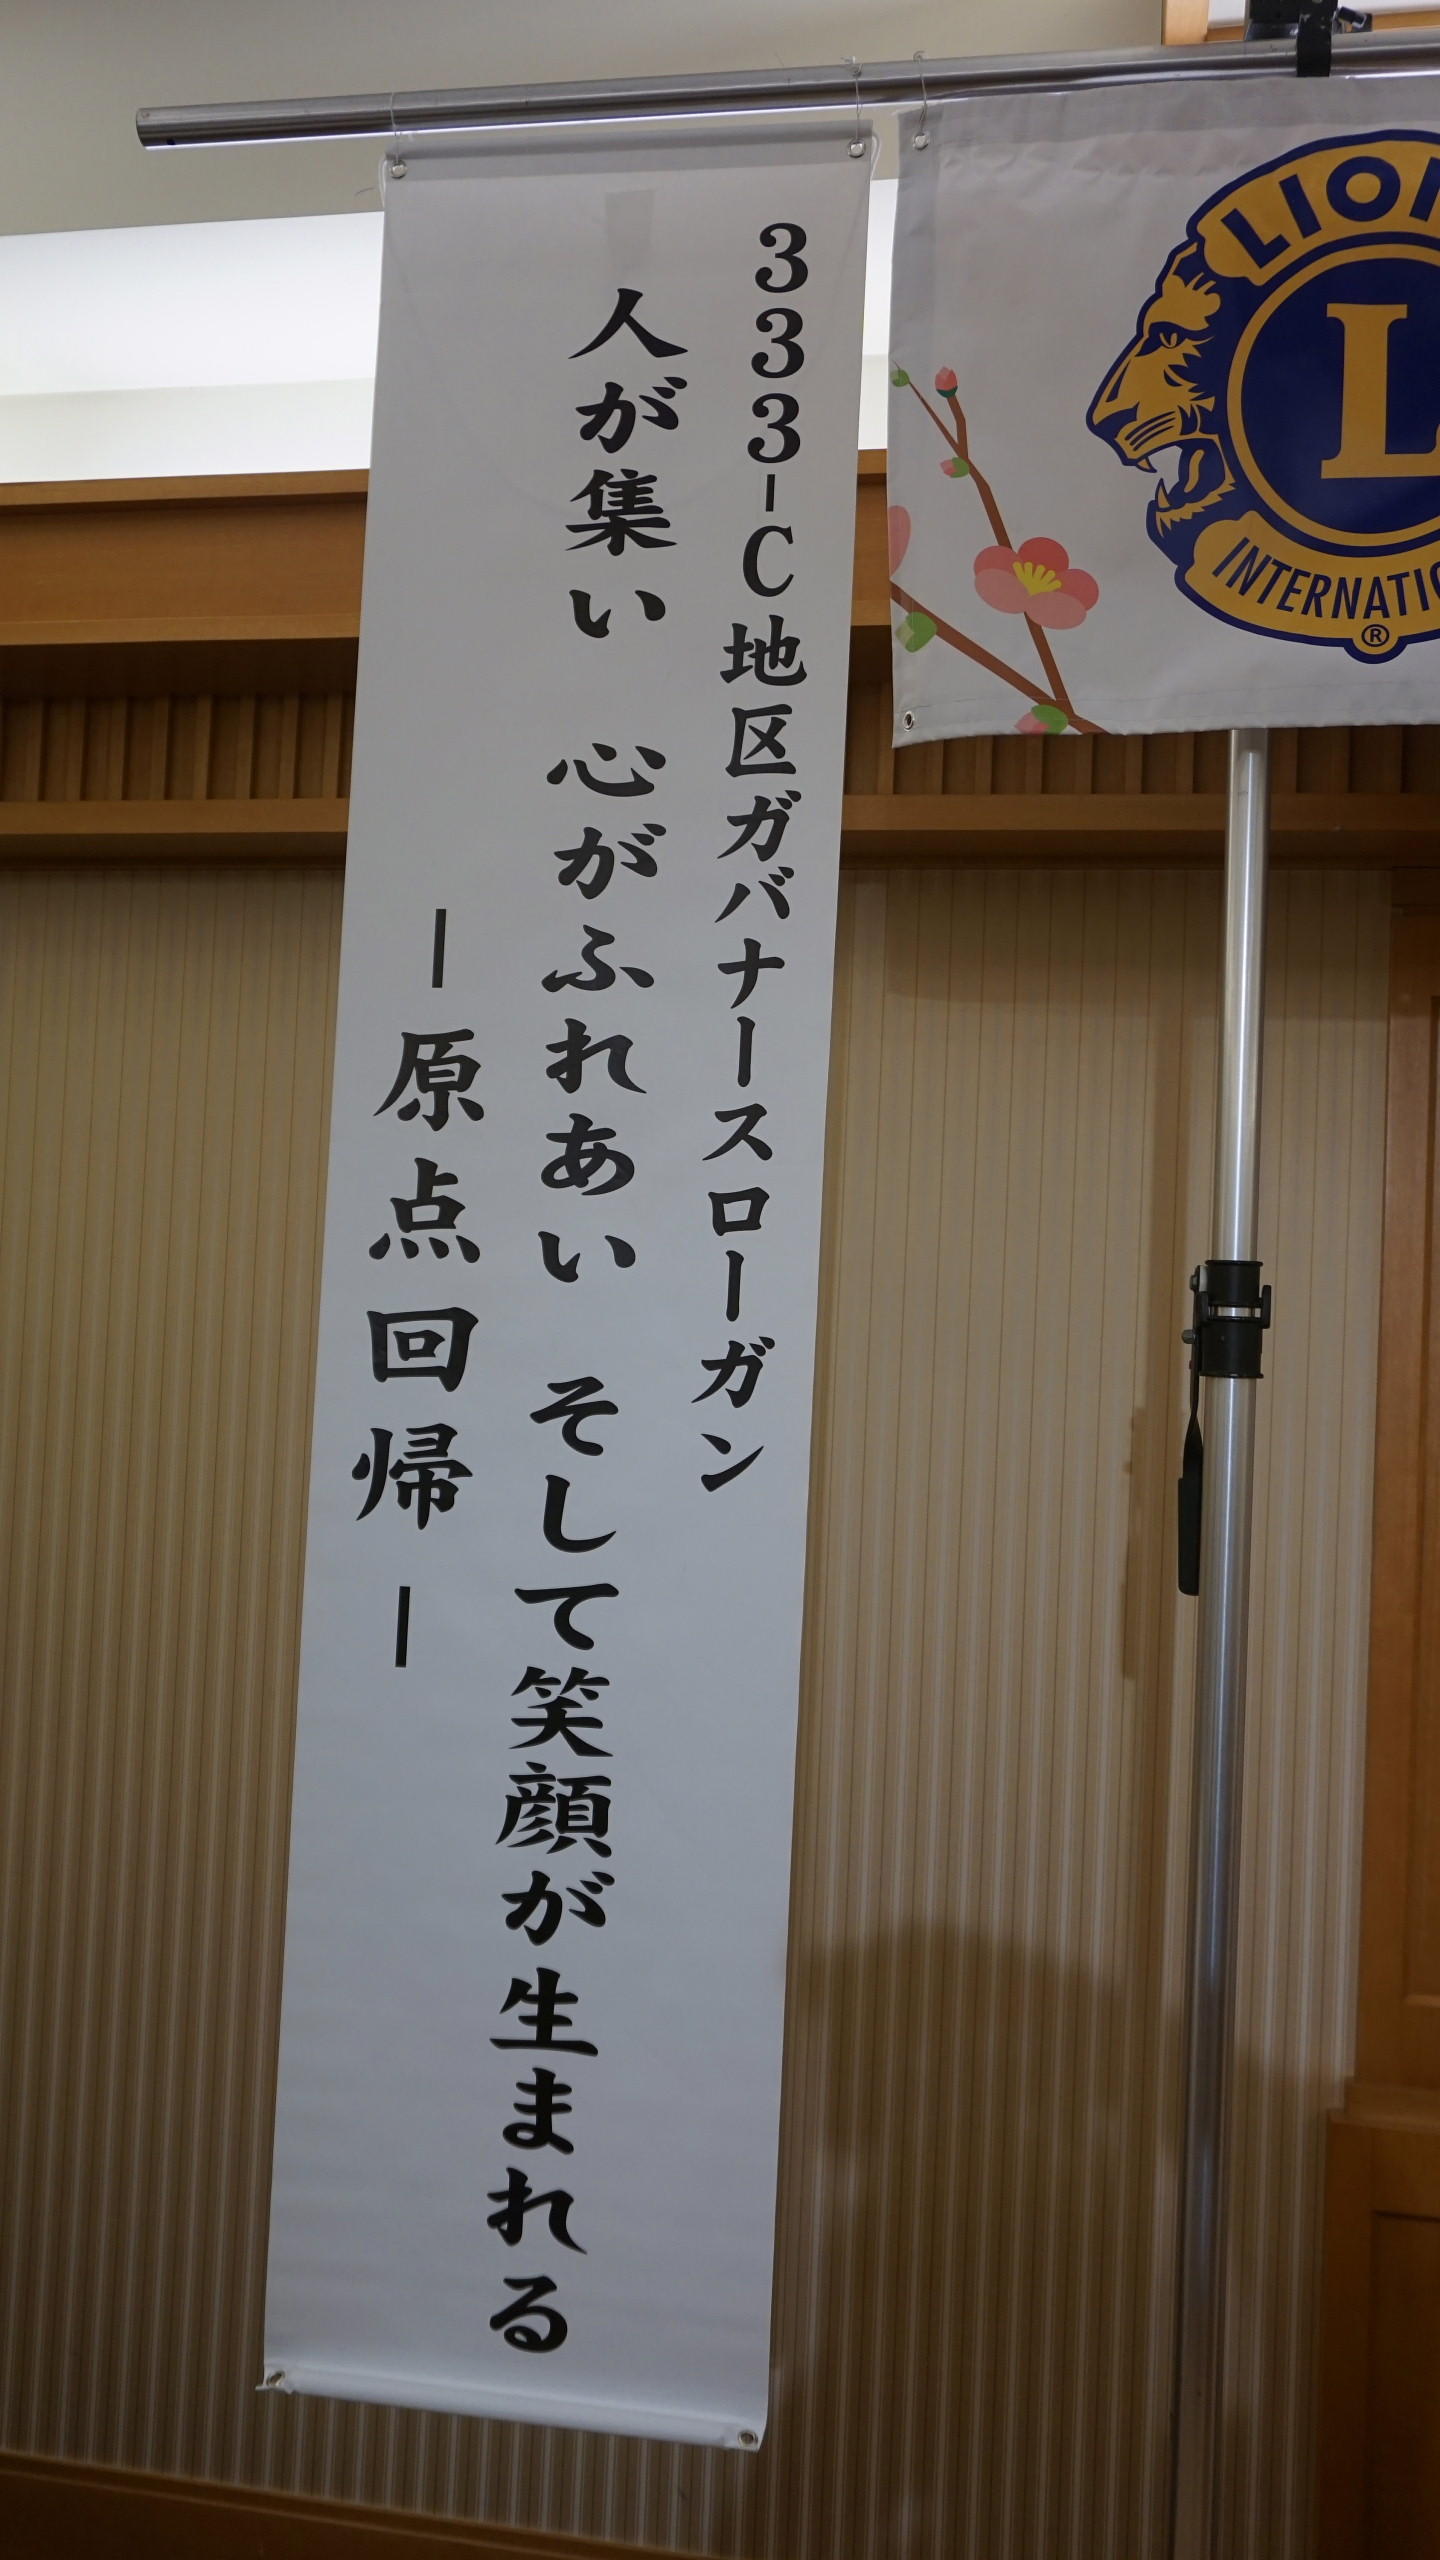 333-C地区ガバナースローガン
人が集い 心がふれあい そして笑顔が生まれる
ー原点回帰ー
L
INTERNATIO
®